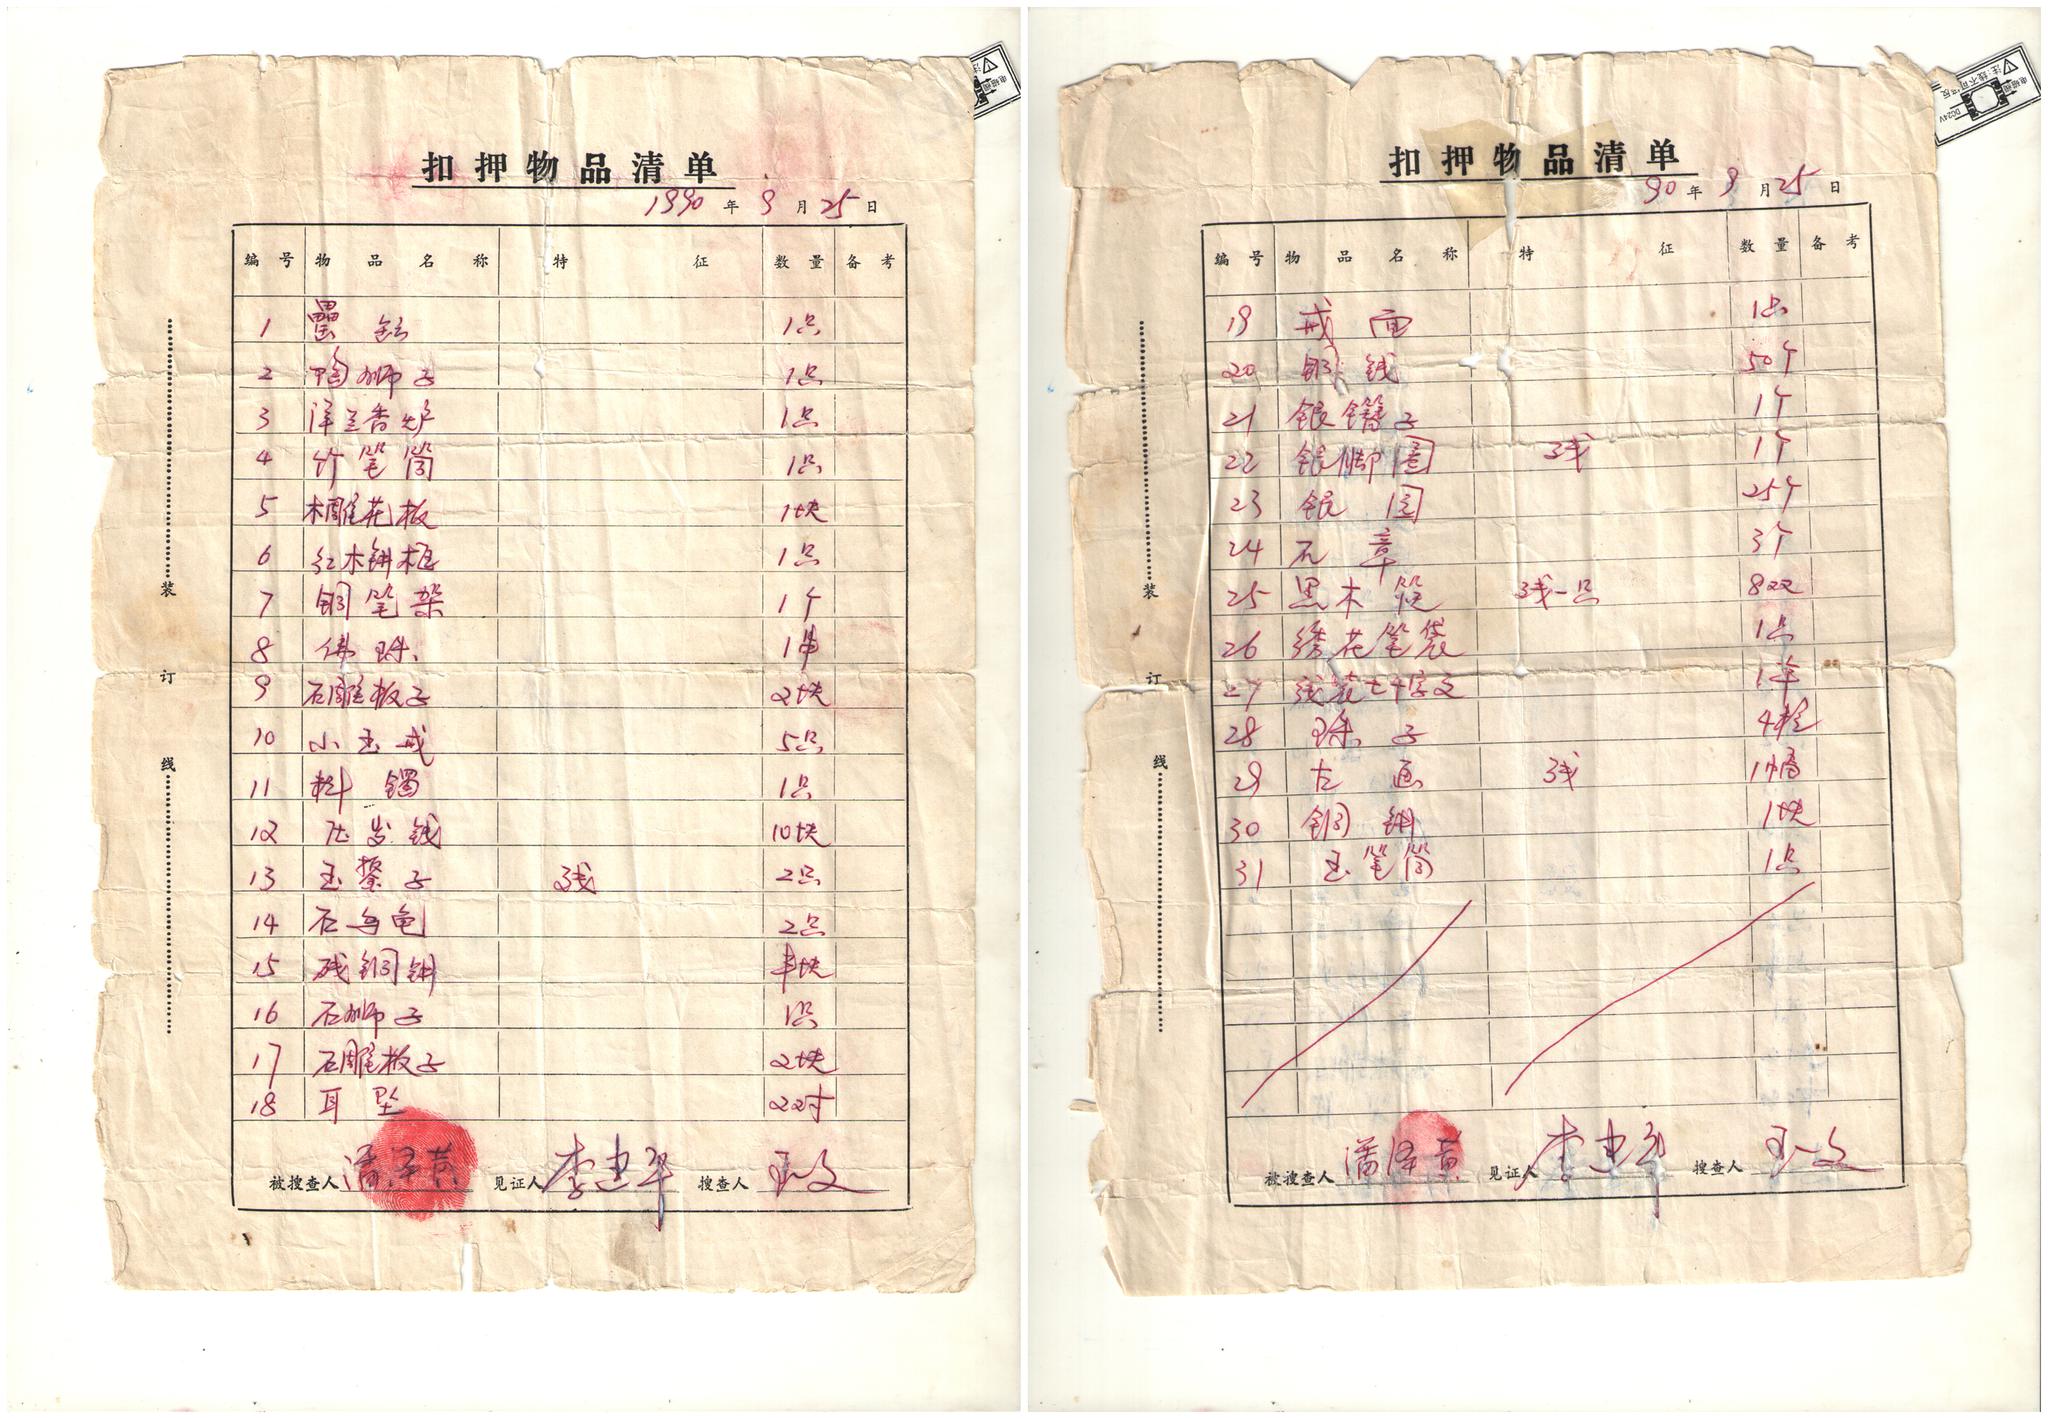 扣押物品清单
1990年9月25日
编号 物品名称 特征 数量 备考
1 罍 1只
2 陶狮子 1只
3 洋兰香炉 1只
4 竹笔筒 1只
5 木雕花板 1块
6 红木饼框 1只
7 铜笔架 1个
8 佛珠 1串
9 石雕板子 2块
10 小玉戒 5只
11 料镯 1只
12 压岁钱 10块
13 玉錾子 残 2只
14 石乌龟 2只
15 残铜饼 半块
16 石狮子 1只
17 石雕板子 2块
18 耳坠 22对
被搜查人 潘泽黄 见证人 李建平 搜查人 文
装
订
线
扣押物品清单
90年9月25日
编号 物品名称 特征 数量 备考
19 戒面 1只
20 铜钱 50个
21 银簪子 1个
22 银脚圈 残 1个
23 银圆 25个
24 石章 3个
25 黑木筷 残一只 8双
26 绣花笔袋 1只
27 线装七千字文 1本
28 珠子 4粒
29 古画 残 1幅
30 铜饼 1块
31 玉笔筒 1只
被搜查人 潘泽黄 见证人 李建平 搜查人 文
装
订
线
DC24V